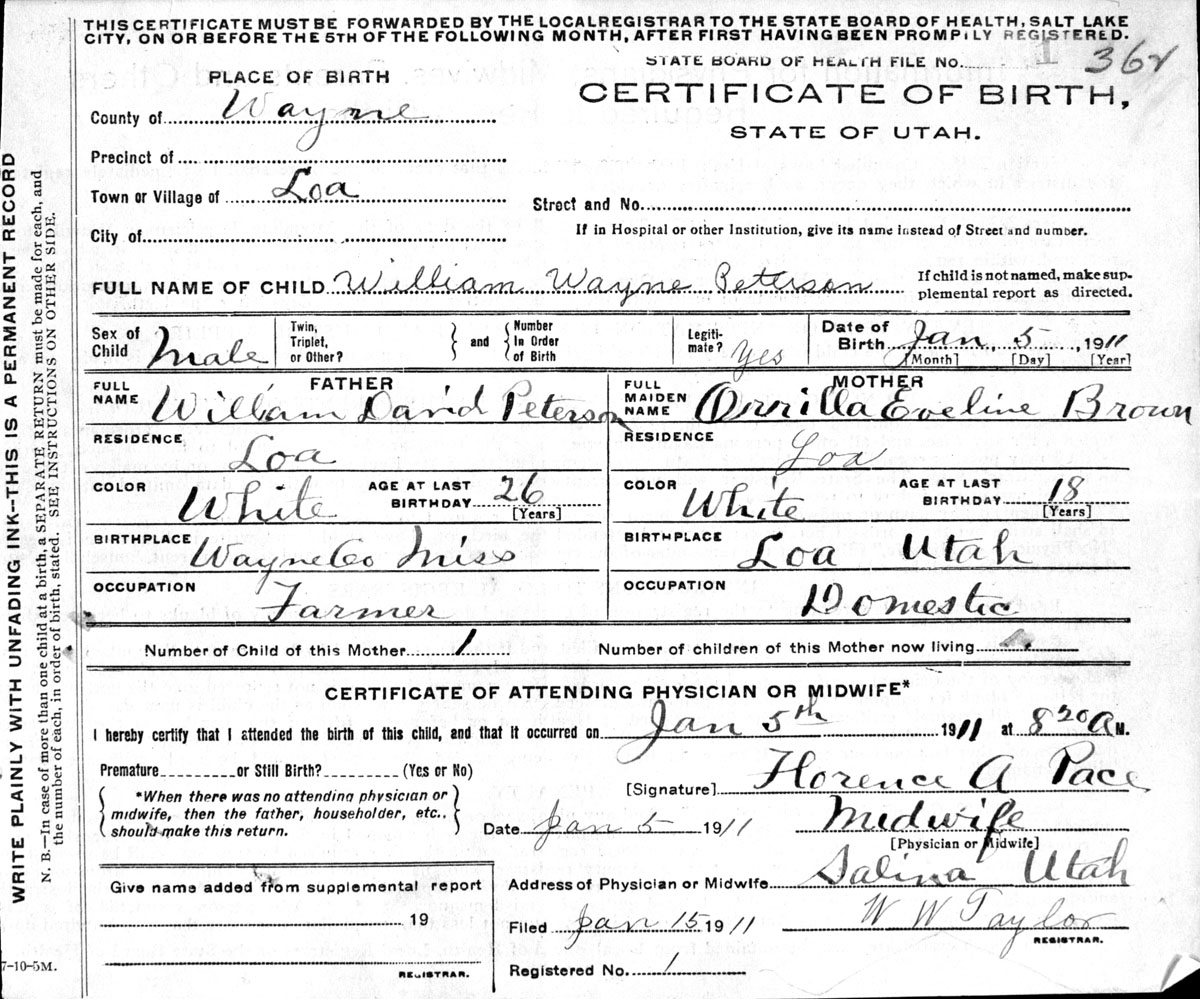 THIS CERTIFICATE MUST BE FORWARDED BY THE LOCALREGISTRAR TO THE STATE BOARD OF HEALTH, SALT LAKE
CITY, ON OR BEFORE THE 5TH OF THE FOLLOWING MONTH, AFTER FIRST HAVING BEEN PROMPTLY REGISTERED.
STATE BOARD OF HEALTH FILE No. 1 362
PLACE OF BIRTH
CERTIFICATE OF BIRTH,
STATE OF UTAH.
County of Wayne
Precinct of
Town or Village of Loa
Street and No.
City of
If in Hospital or other Institution, give its name instead of Street and number.
FULL NAME OF CHILD William Wayne Peterson
If child is not named, make sup-
plemental report as directed.
Sex of Child Male
Twin, Triplet, or Other?
and
Number In Order of Birth
Legiti-mate? Yes
Date of Birth Jan 5, 1911
[Month] [Day] [Year]
FATHER
FULL NAME William David Peterson
MOTHER
FULL MAIDEN NAME Orrilla Eveline Brown
RESIDENCE Loa
RESIDENCE Loa
COLOR White AGE AT LAST BIRTHDAY 26 [Years]
COLOR White AGE AT LAST BIRTHDAY 18 [Years]
BIRTHPLACE Wayne Co Miss
BIRTHPLACE Loa Utah
OCCUPATION Farmer
OCCUPATION Domestic
Number of Child of this Mother 1 Number of children of this Mother now living
CERTIFICATE OF ATTENDING PHYSICIAN OR MIDWIFE*
I hereby certify that I attended the birth of this child, and that it occurred on Jan 5th 1911 at 8 20 A M.
Premature or Still Birth? (Yes or No)
*When there was no attending physician or
midwife, then the father, householder, etc.,
should make this return.
[Signature] Florence A Pace
Date Jan 5 1911 Midwife
[Physician or Midwife]
Give name added from supplemental report
19
REGISTRAR.
Address of Physician or Midwife Salina Utah
Filed Jan 15 1911 W W Taylor
REGISTRAR.
Registered No. 1
7-10-5M.
WRITE PLAINLY WITH UNFADING INK--THIS IS A PERMANENT RECORD
N. B.—In case of more than one child at a birth, a SEPARATE RETURN must be made for each, and
the number of each, in order of birth, stated. SEE INSTRUCTIONS ON OTHER SIDE.